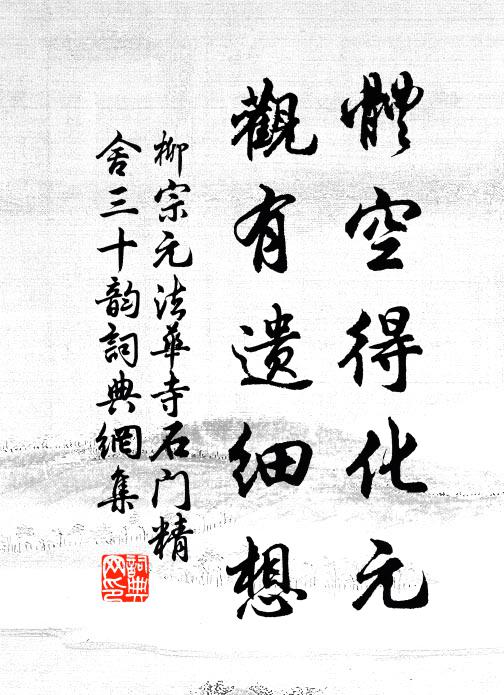 體空得化元
觀有遺細想
柳宗元法華寺石门精
舍三十韵詞典網集
詞典
网印